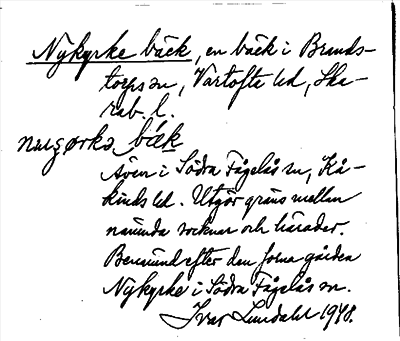 Nykyrke bäck, en bäck i Brands-
torps sn, Vartofta hd, Ska-
rab. l.
nygørkə bæk
Även i Södra Fågelås sn, Kå-
kinds hd. Utgör gräns mellan
nämnda socknar och härader.
Benämnd efter den forna gården
Nykyrke i Södra Fågelås sn.
Ivar Lundahl 1948.